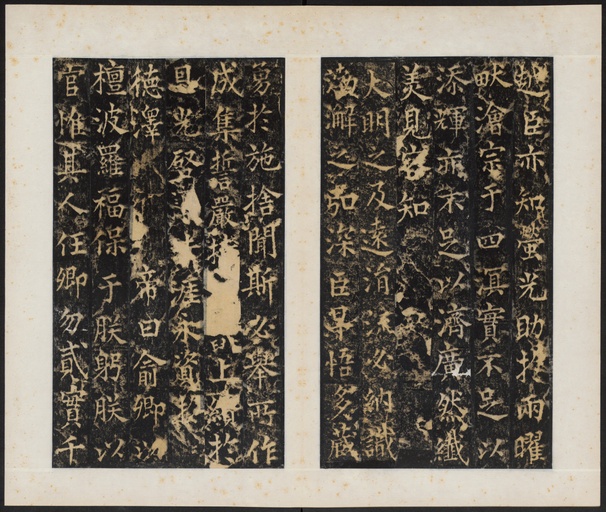 臣亦知螢光助於兩曜
畎澮宗于四溟實不足以
添輝亦不足以濟廣然纖
美見容知
大明之及遠涓流必納識
渤澥之弘深臣早悟多藏
勇於施捨聞斯必舉所作
成集誓嚴持以上願於
光啓涯永資
德澤帝曰俞卿以
檀波羅福保于朕躬朕以
官惟其人任卿勿貳實千